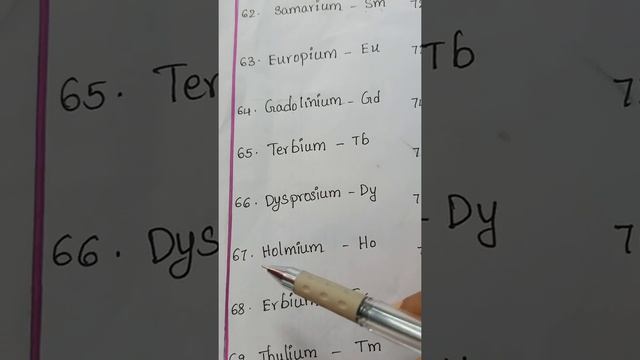 62. Samarium - Sm
63. Europium - Eu 7
64. Gadolinium - Gd 7
65. Terbium - Tb 7
66. Dysprosium - Dy 7
67. Holmium - Ho
68. Erbium
69. Thulium - Tm
65. Ter
66. Dys
Tb
7
- Dy
7